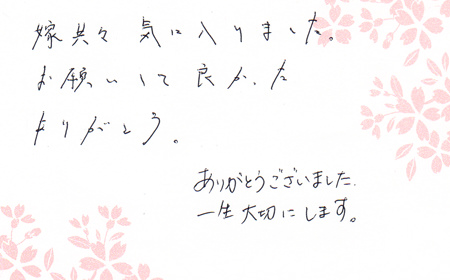 嫁共々気に入りました。
お願いして良かった
ありがとう。
ありがとうございました.
一生大切にします。